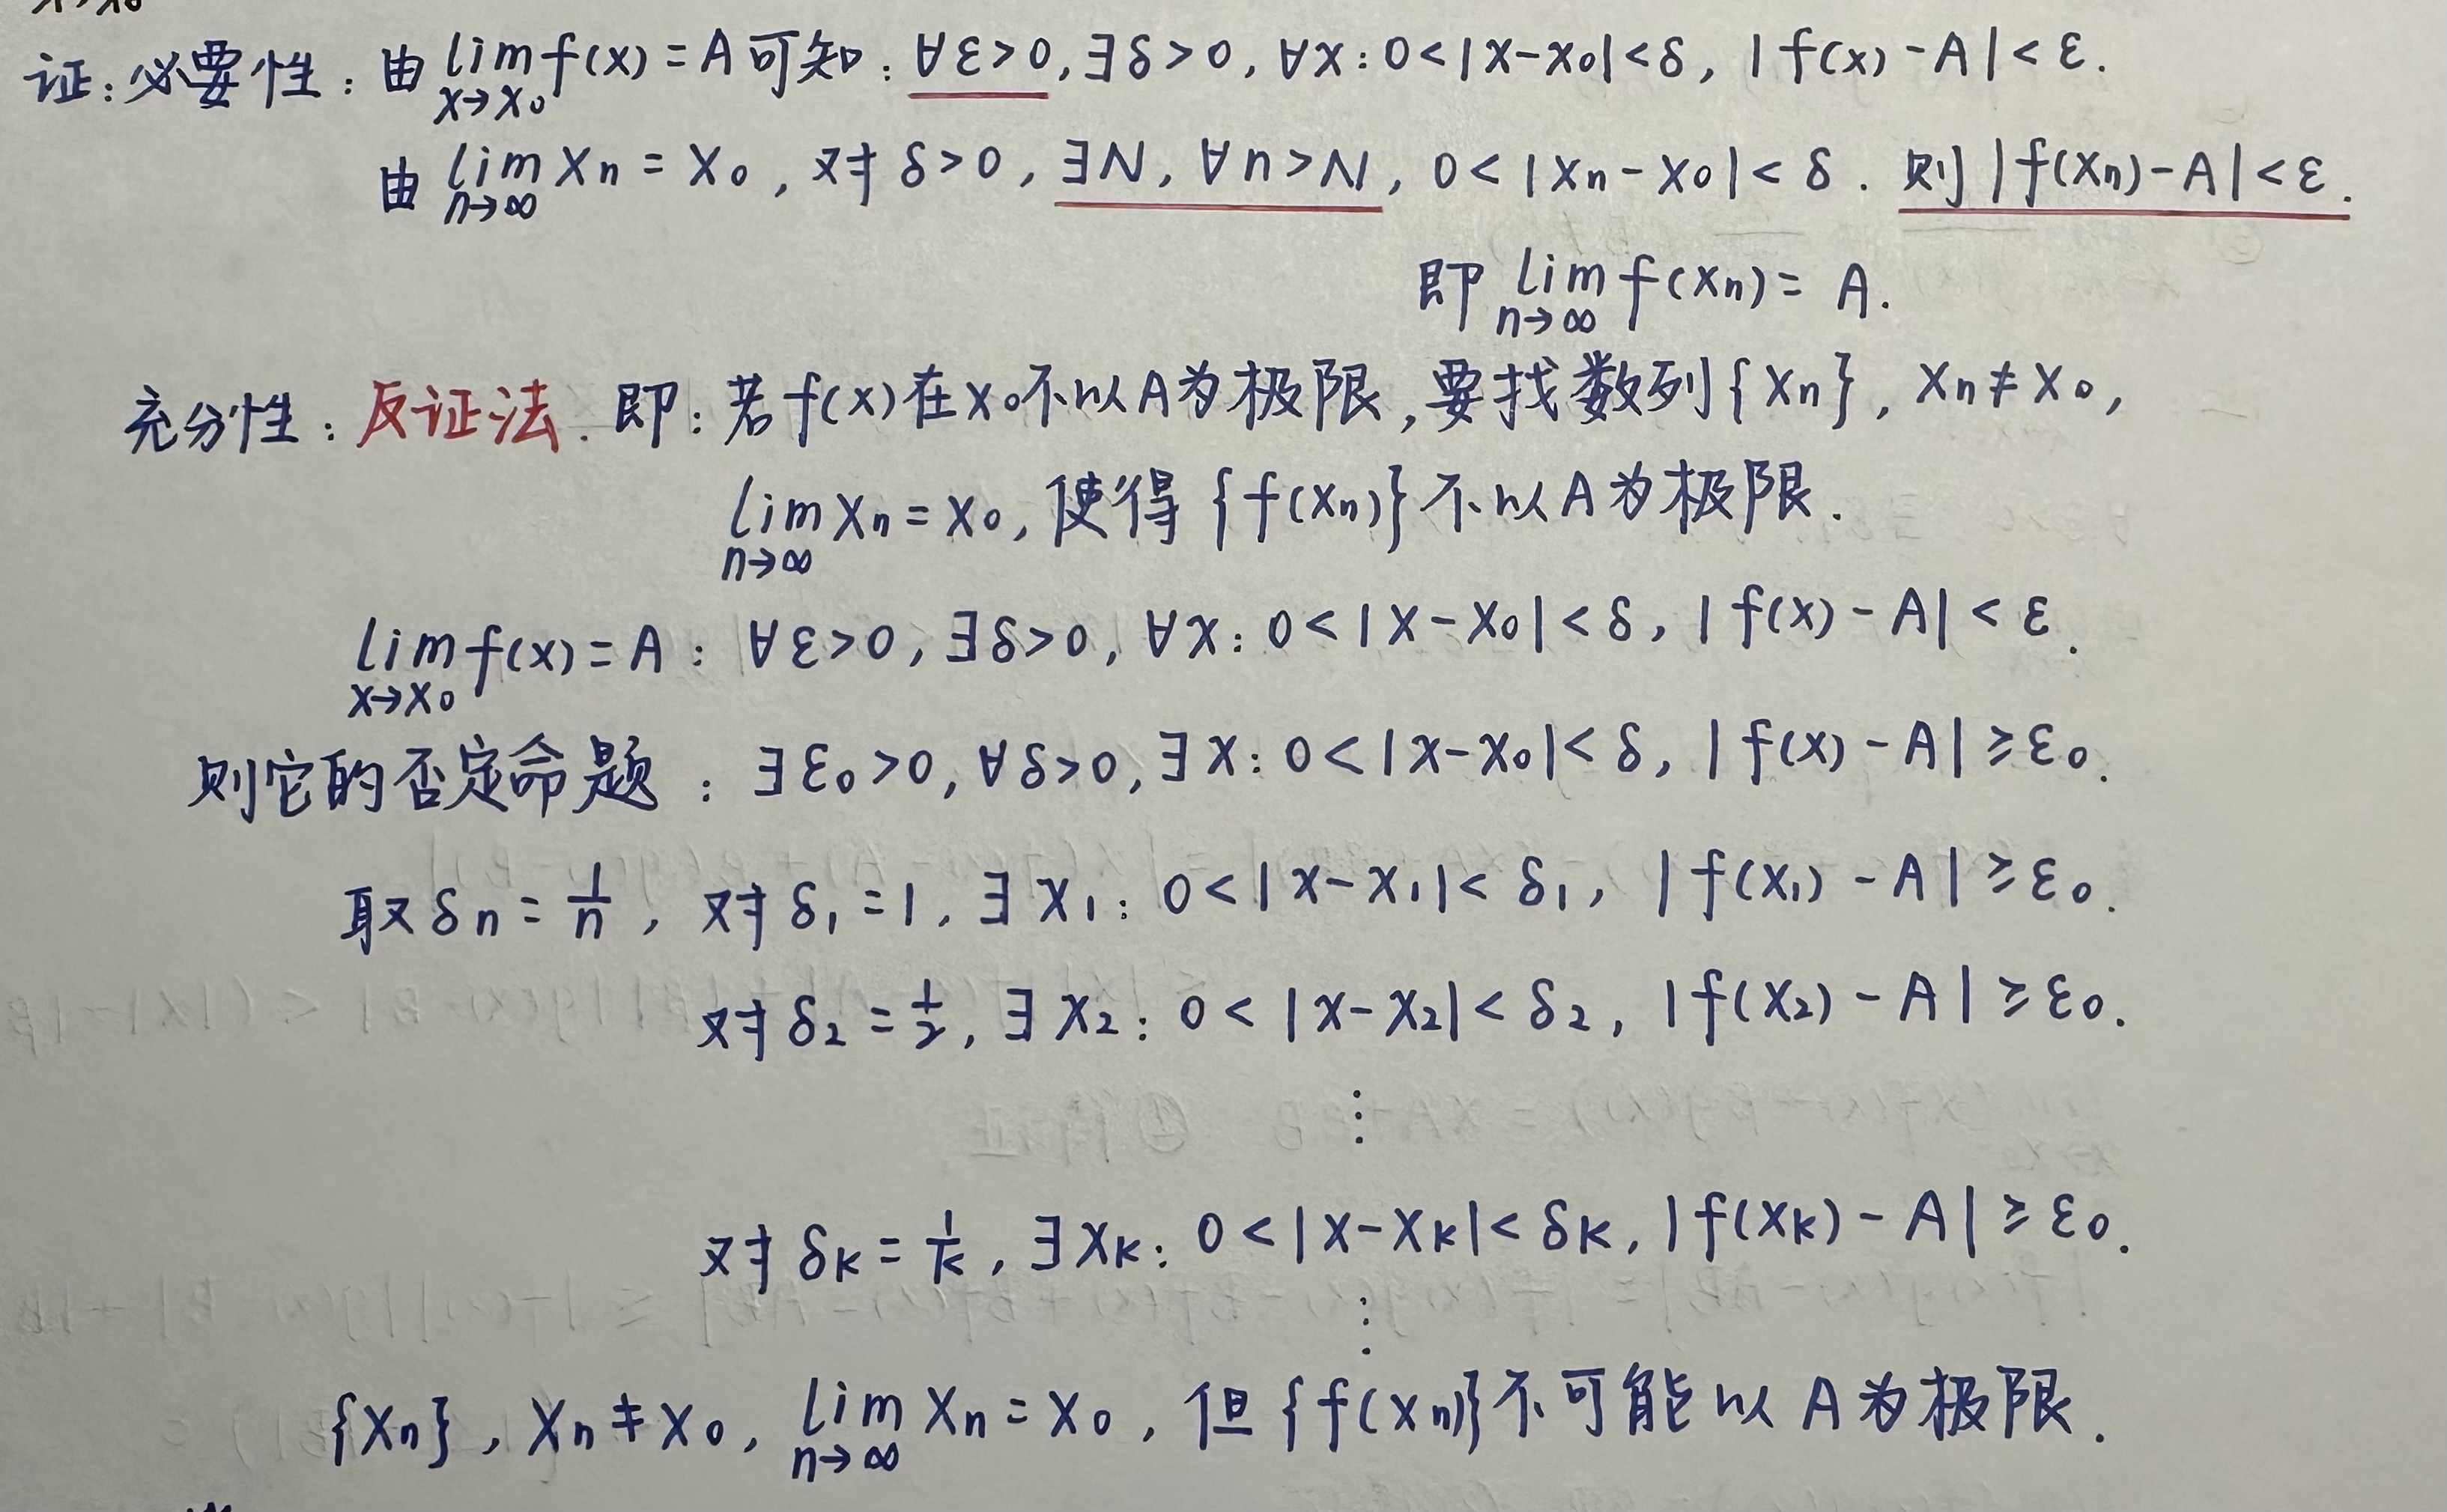 证：必要性：由 lim f(x) = A 可知：∀ε>0, ∃δ>0, ∀x: 0<|x-x₀|<δ, |f(x)-A|<ε.
x→x₀
由 lim xₙ = x₀, 对 δ>0, ∃N, ∀n>N, 0<|xₙ-x₀|<δ. 则 |f(xₙ)-A|<ε.
n→∞
即 lim f(xₙ) = A.
n→∞
充分性：反证法. 即：若 f(x) 在 x₀ 不以 A 为极限, 要找数列 {xₙ}, xₙ≠x₀,
lim xₙ = x₀, 使得 {f(xₙ)} 不以 A 为极限.
n→∞
lim f(x) = A : ∀ε>0, ∃δ>0, ∀x: 0<|x-x₀|<δ, |f(x)-A|<ε.
x→x₀
则它的否定命题：∃ε₀>0, ∀δ>0, ∃x: 0<|x-x₀|<δ, |f(x)-A|≥ε₀.
取 δₙ = 1/n, 对 δ₁=1, ∃x₁: 0<|x-x₁|<δ₁, |f(x₁)-A|≥ε₀.
对 δ₂=1/2, ∃x₂: 0<|x-x₂|<δ₂, |f(x₂)-A|≥ε₀.
⋮
对 δₖ=1/k, ∃xₖ: 0<|x-xₖ|<δₖ, |f(xₖ)-A|≥ε₀.
⋮
{xₙ}, xₙ≠x₀, lim xₙ = x₀, 但 {f(xₙ)} 不可能以 A 为极限.
n→∞